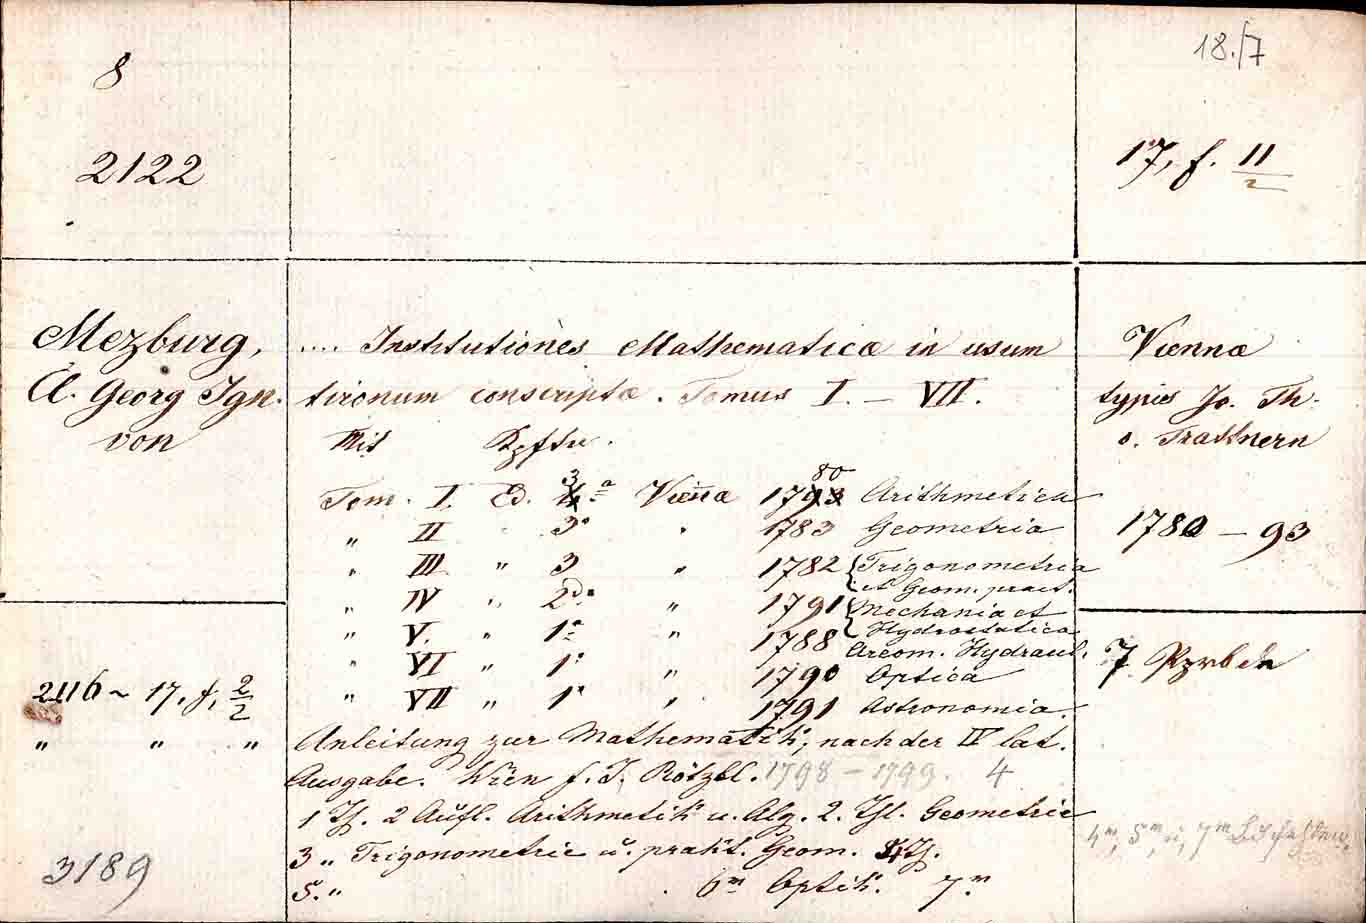 8
2122
18./7
17, f. 11/2
Mezburg,
A. Georg Ign.
von
.... Institutiones Mathematicæ in usum
tironum conscriptæ. Tomus I. – VII.
Mit Kpftn.
Tom. I. Ed. 3 a Viennæ 1780 Arithmetica
„ II 3a „ 1783 Geometria
„ III „ 3 „ 1782 { Trigonometria
et Geom. pract.
„ IV „ 2da „ 1791 { Mechania et
Hydrostatica
„ V. „ 1a „ 1788 Areom. Hydraul.
„ VI „ 1a „ 1790 Optica
„ VII „ 1a „ 1791 Astronomia.
Anleitung zur Mathematik, nach der IV lat.
Ausgabe. Wien f. J. Rötzel. 1798 – 1799. 4
1 Th. 2 Aufl. Arithmetik u. Alg. 2. Thl. Geometrie
3 „ Trigonometrie u. prakt. Geom. 4 Th.
5. „ 6m Optik. 7m
Viennæ
typis Jo. Th.
o. Trattnern
1780 – 93
7
2116 ~ 17, f. 2/2
„ „ „
3189
4m, 5m, u, 7m